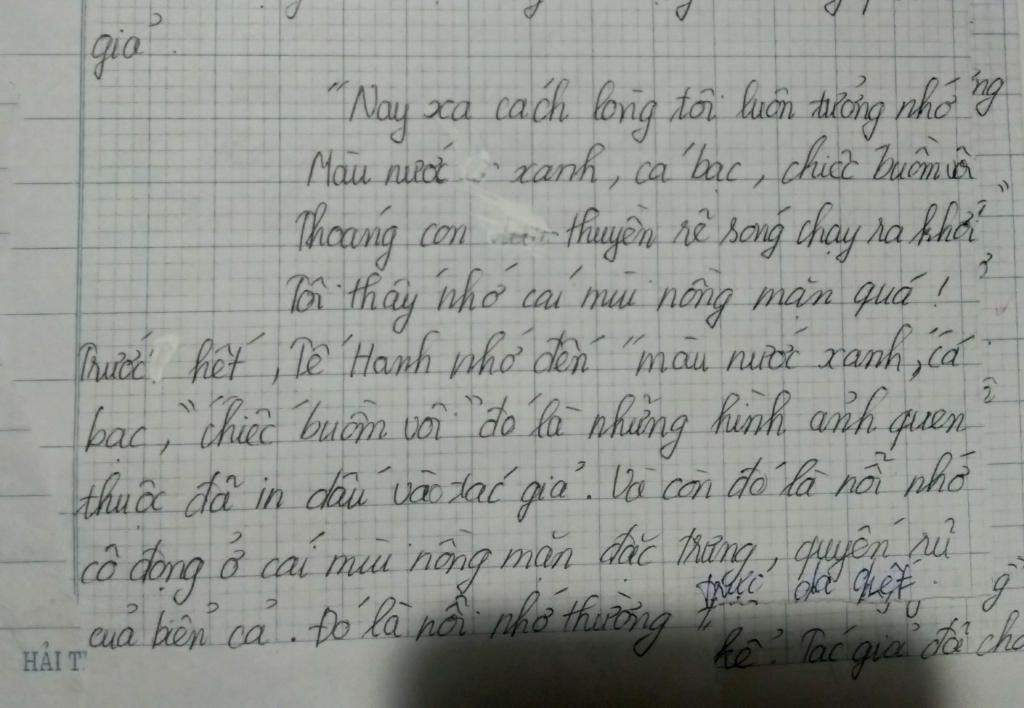 giả.
"Nay xa cách lòng tôi luôn tưởng nhớ
Màu nước xanh, cá bạc, chiếc buồm vôi
Thoáng con thuyền rẽ sóng chạy ra khơi"
Tôi thấy nhớ cái mùi nồng mặn quá!
Trước hết, Tế Hanh nhớ đến "màu nước xanh, cá
bạc," "chiếc buồm vôi" đó là những hình ảnh quen
thuộc đã in dấu vào tác giả. Và còn đó là nỗi nhớ
cô đọng ở cái mùi nồng mặn đặc trưng, quyến rũ
của biển cả. Đó là nỗi nhớ thường
kề. Tác giả đã cho
HẢI T